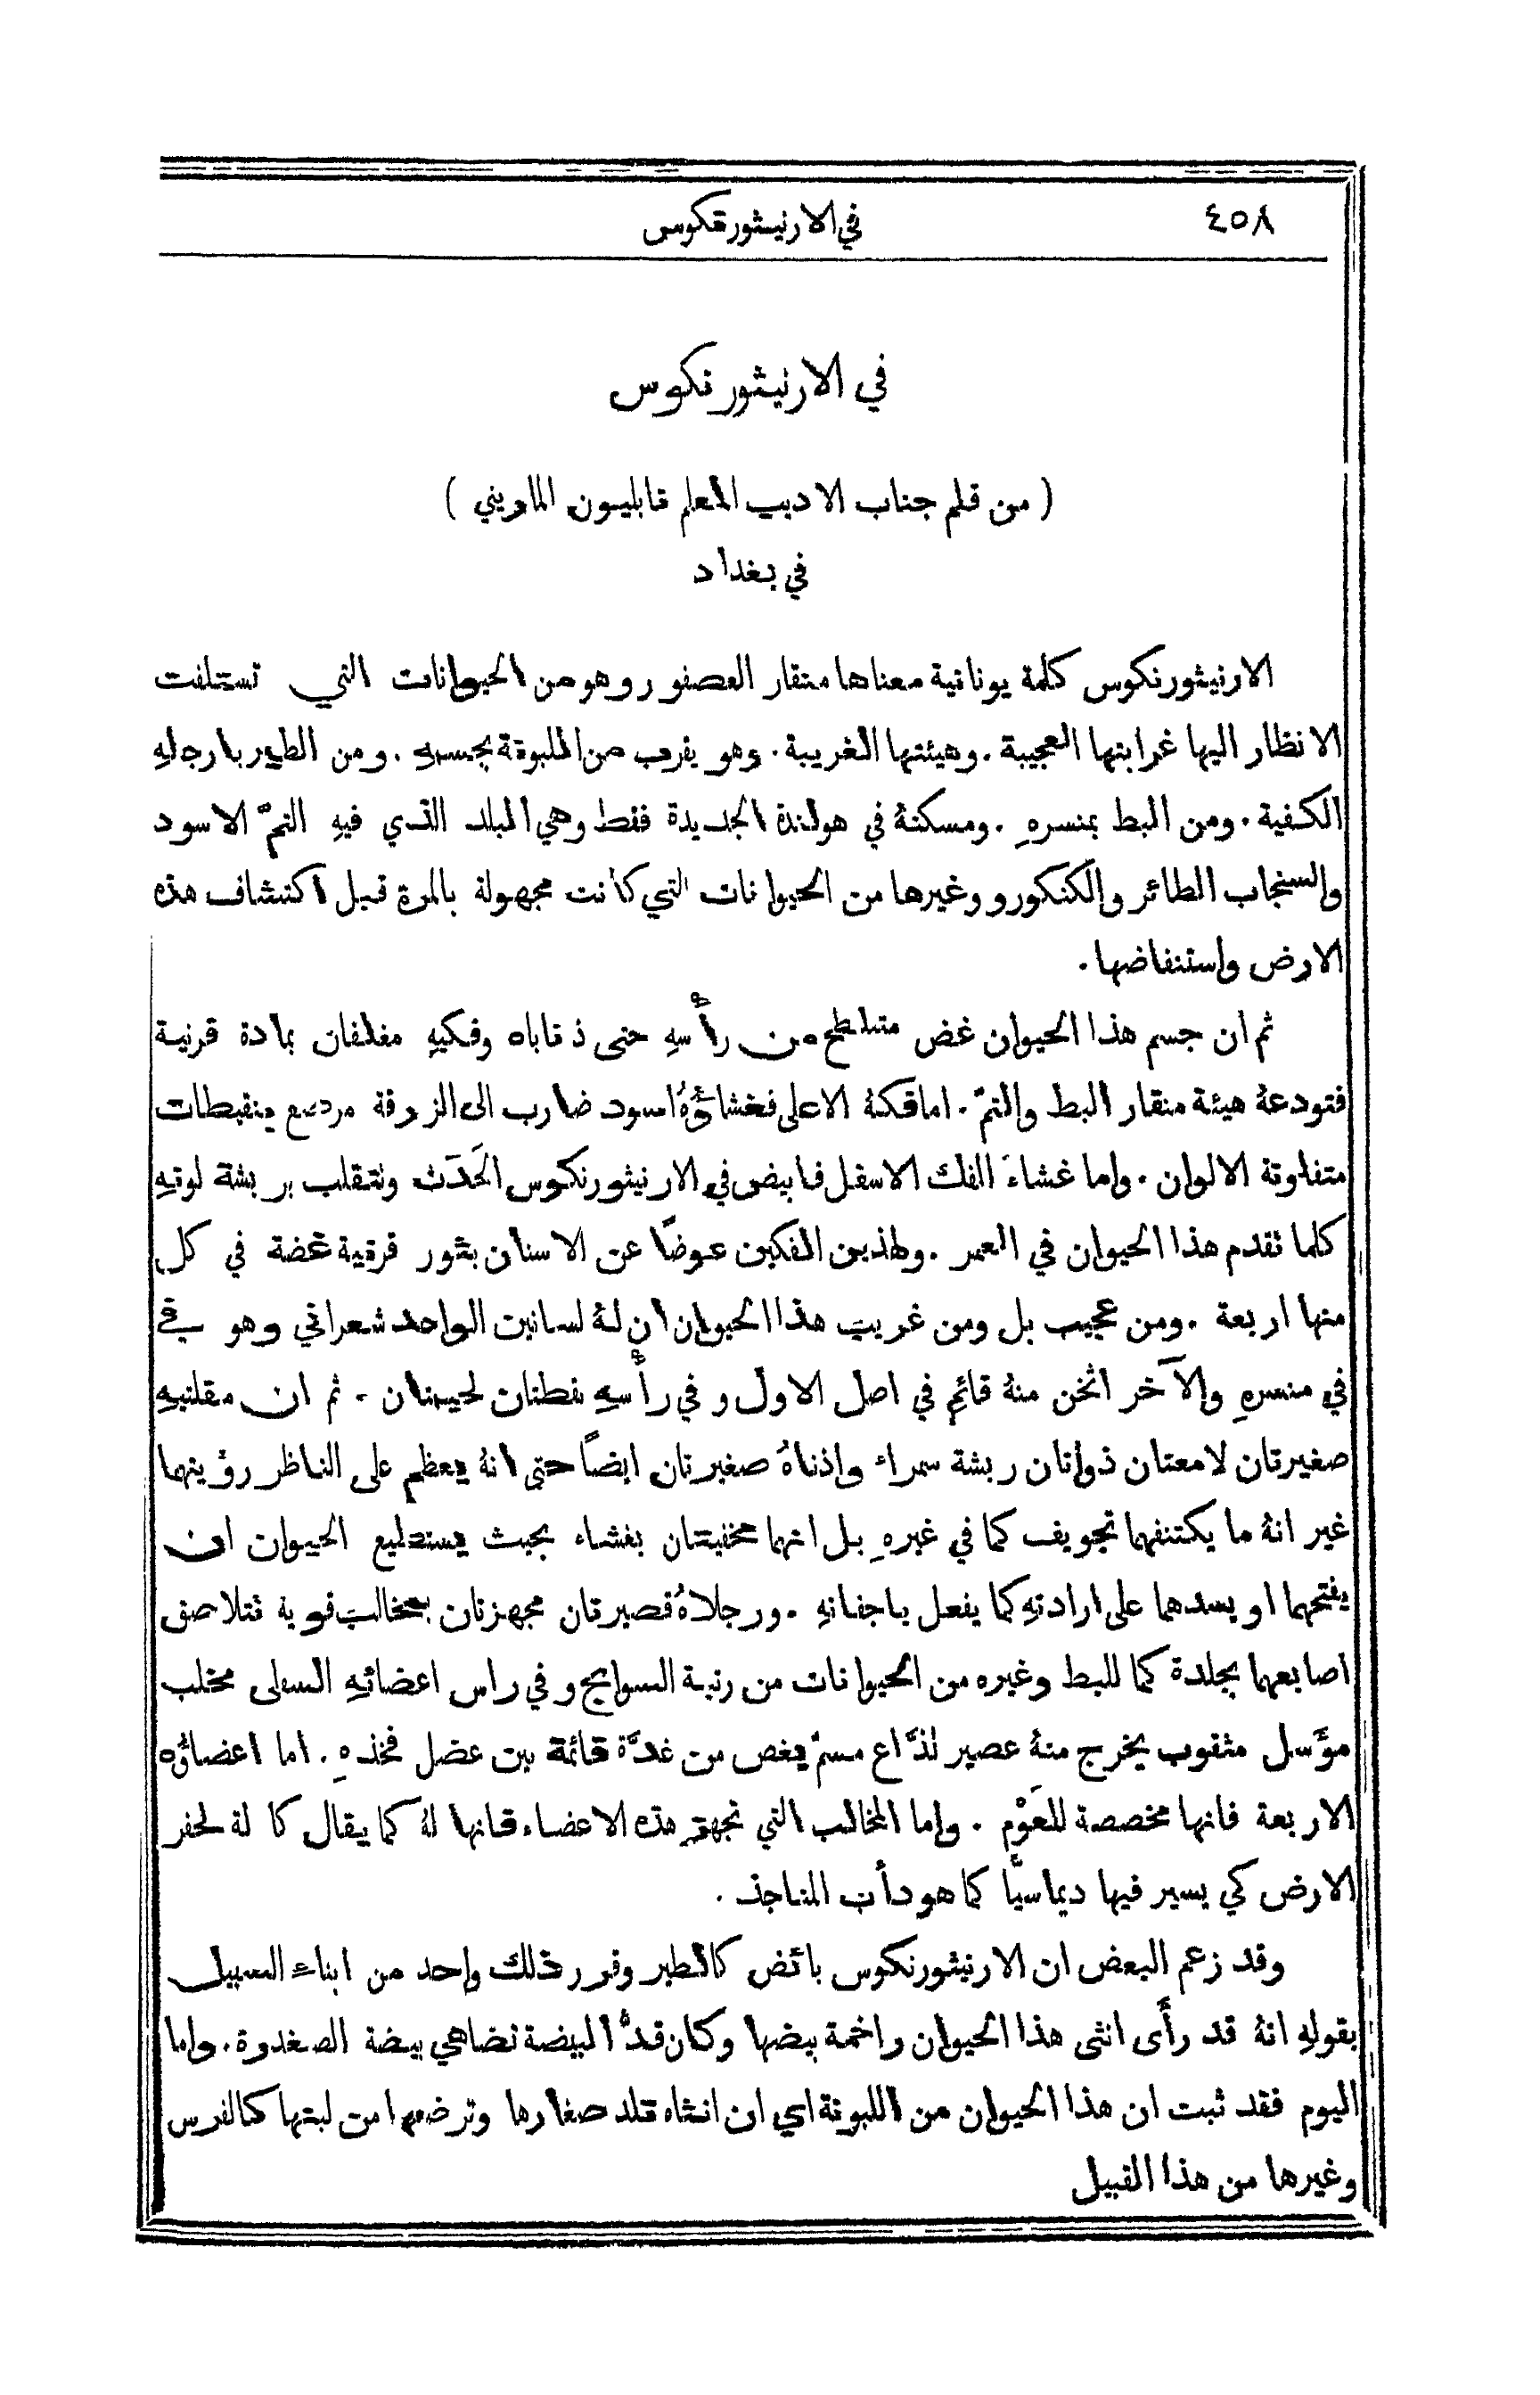 ٤٥٨
في الارنيثورنكوس
في الارنيثورنكوس
( من قلم جناب الاديب المعلم نابليون الماريني )
في بغداد
الارنيثورنكوس كلمة يونانية معناها منقار العصفور وهو من الحيوانات التي تستلفت
الانظار اليها غرابتها العجيبة . وهيئتها الغريبة . وهو يقرب من اللبونة بجسمهِ . ومن الطير بارجلهِ
الكفية . ومن البط بمنسرهِ . ومسكنهُ في هولندة الجديدة فقط وهي البلد الذي فيهِ التمّ الاسود
والسنجاب الطائر والكنكورو وغيرها من الحيوانات التي كانت مجهولة بالمرة قبل اكتشاف هذه
الارض واستنفاضها .
ثم ان جسم هذا الحيوان غض متسلطح من رأسهِ حتى ذناباه وفكيهِ مغلفان بمادة قرنية
فتودعهُ هيئة منقار البط والتمّ . اما فكهُ الاعلى فغشاؤهُ اسود ضارب الى الزرقة مرصع بنقيطات
متفاوتة الالوان . واما غشاءَ الفك الاسفل فابيض في الارنيثورنكوس الحَدَث وتتقلب بربشة لونهِ
كلما تقدم هذا الحيوان في العمر . ولهذين الفكين عوضًا عن الاسنان بثور قرنية غضة في كل
منها اربعة . ومن عجيب بل ومن غريب هذا الحيوان ان لهُ لسانين الواحد شعراني وهو في
في منسرهِ والآخر اثخن منهُ قائم في اصل الاول وفي رأسهِ نقطتان لحيمتان . ثم ان مقلتيهِ
صغيرتان لامعتان ذواتان ربشة سمراء واذناهُ صغيرتان ايضًا حتى انهُ يعظم على الناظر رؤيتهما
غير انهُ ما يكتنفهما تجويف كما في غيرهِ بل انهما مخفيتان بغشاء بحيث يستطيع الحيوان ان
يفتحهما او يسدهما على ارادتهِ كما يفعل باجفانهِ . ورجلاهُ قصيرتان مجهزتان بمخالب قوية تتلاصق
اصابعهما بجلدة كما للبط وغيره من الحيوانات من رتبة السوابح وفي راس اعضائهِ السفلى مخلب
مؤسل مثقوب يخرج منهُ عصير لذَّاع مسمّ يغص من غدَّة قائمة بين عضل فخذهِ . اما اعضاؤه
الاربعة فانها مخصصة للعَوْم . واما المخالب التي تجهز هذه الاعضاء فانها لهُ كما يقال كآلة لحفر
الارض كي يسير فيها ديماسيًّا كما هو دأب المناجذ .
وقد زعم البعض ان الارنيثورنكوس بائض كالطير وقرر ذلك واحد من ابناء السبيل
بقولهِ انهُ قد رأَى انثى هذا الحيوان راخمة بيضها وكان قدُّ البيضة تضاهي بيضة الصغدرة . واما
اليوم فقد ثبت ان هذا الحيوان من اللبونة اي ان انثاه تلد صغارها وترضعها من لبنها كالفرس
وغيرها من هذا القبيل